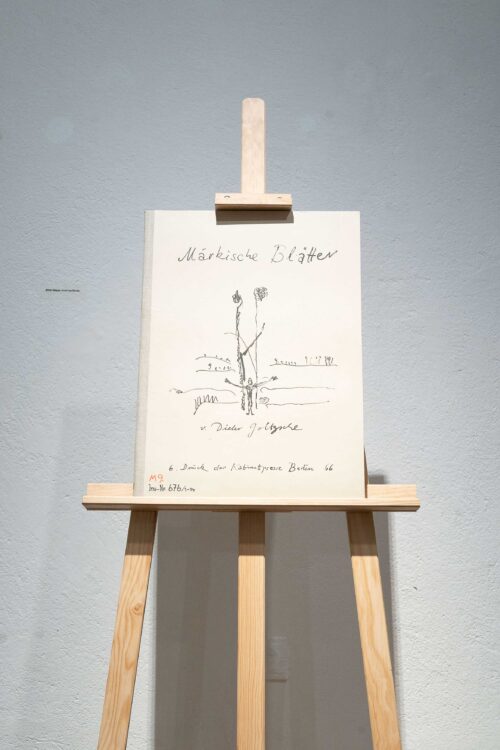 Märkische Blätter
v. Dieter Goltzsche
6. Druck der Kabinettpresse Berlin 66
M9
Inv-Nr. 676/1-m